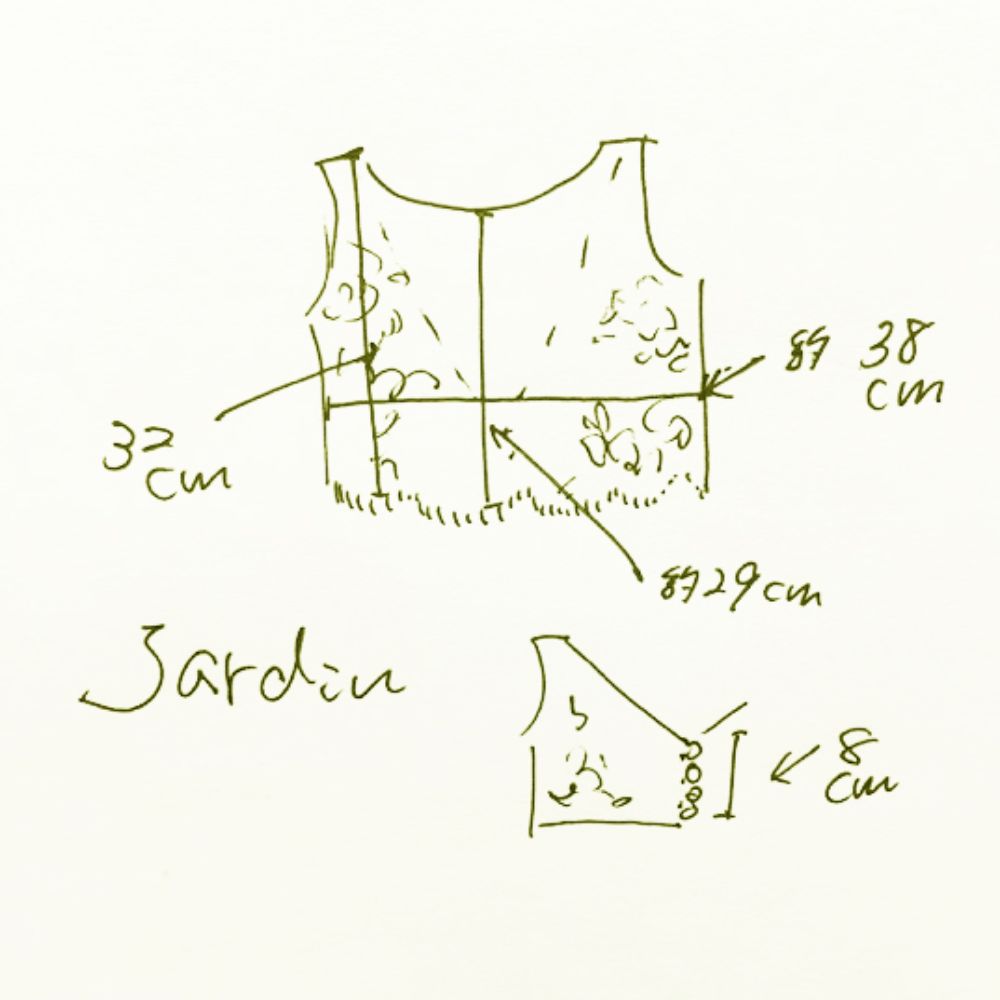 約 38
cm
32
cm
約29cm
Jardin
8
cm